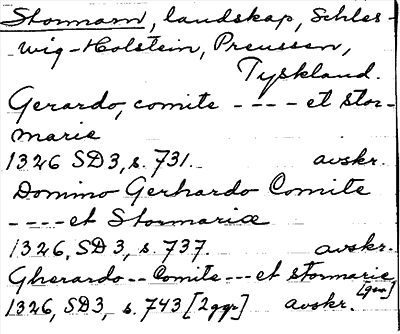 Stormarn, landskap, Schles-
wig-Holstein, Preussen,
Tyskland.
Gerardo, comite ---- et stor-
marie
1326 SD3, s. 731. avskr.
Domino Gerhardo Comite
---- et Stormariæ
1326, SD3, s. 737. avskr.
Gherardo -- Comite --- et stormarie
[gen]
1326, SD3, s. 743 [2ggr] avskr.